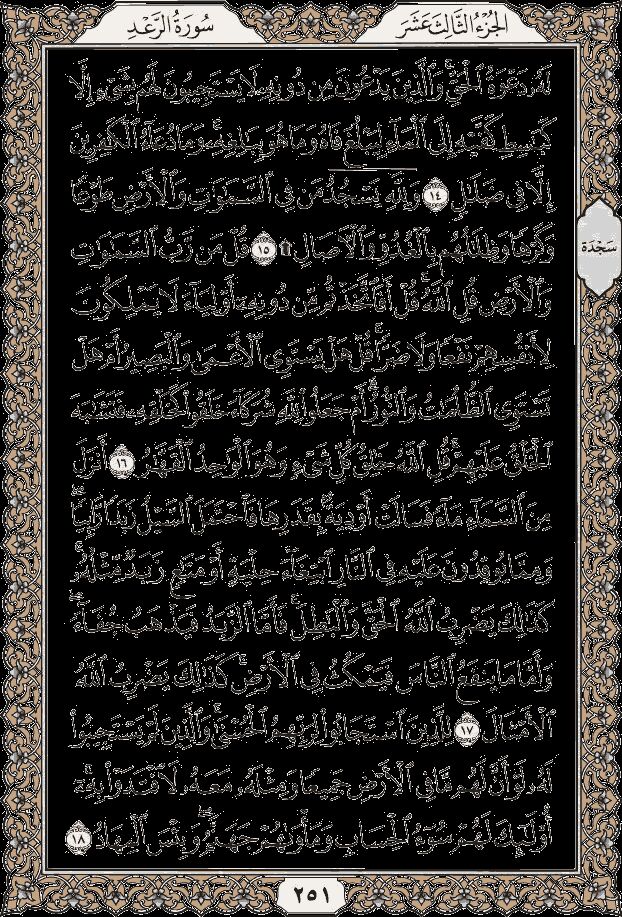 الجُزْءُ الثَّالِثَ عَشَرَ
سُورَةُ الرَّعْدِ
لَهُۥ دَعْوَةُ ٱلْحَقِّ وَٱلَّذِينَ يَدْعُونَ مِن دُونِهِۦ لَا يَسْتَجِيبُونَ لَهُم بِشَىْءٍ إِلَّا
كَبَٰسِطِ كَفَّيْهِ إِلَى ٱلْمَآءِ لِيَبْلُغَ فَاهُ وَمَا هُوَ بِبَٰلِغِهِۦ وَمَا دُعَآءُ ٱلْكَٰفِرِينَ
إِلَّا فِى ضَلَٰلٍ ١٤ وَلِلَّهِ يَسْجُدُ مَن فِى ٱلسَّمَٰوَٰتِ وَٱلْأَرْضِ طَوْعًا
وَكَرْهًا وَظِلَٰلُهُم بِٱلْغُدُوِّ وَٱلْءَاصَالِ ۩ ١٥ قُلْ مَن رَّبُّ ٱلسَّمَٰوَٰتِ
سَجْدَة
وَٱلْأَرْضِ قُلِ ٱللَّهُ قُلْ أَفَٱتَّخَذْتُم مِّن دُونِهِۦٓ أَوْلِيَآءَ لَا يَمْلِكُونَ
لِأَنفُسِهِمْ نَفْعًا وَلَا ضَرًّا قُلْ هَلْ يَسْتَوِى ٱلْأَعْمَىٰ وَٱلْبَصِيرُ أَمْ هَلْ
تَسْتَوِى ٱلظُّلُمَٰتُ وَٱلنُّورُ أَمْ جَعَلُوا۟ لِلَّهِ شُرَكَآءَ خَلَقُوا۟ كَخَلْقِهِۦ فَتَشَٰبَهَ
ٱلْخَلْقُ عَلَيْهِمْ قُلِ ٱللَّهُ خَٰلِقُ كُلِّ شَىْءٍ وَهُوَ ٱلْوَٰحِدُ ٱلْقَهَّٰرُ ١٦ أَنزَلَ
مِنَ ٱلسَّمَآءِ مَآءً فَسَالَتْ أَوْدِيَةٌۢ بِقَدَرِهَا فَٱحْتَمَلَ ٱلسَّيْلُ زَبَدًا رَّابِيًا
وَمِمَّا يُوقِدُونَ عَلَيْهِ فِى ٱلنَّارِ ٱبْتِغَآءَ حِلْيَةٍ أَوْ مَتَٰعٍ زَبَدٌ مِّثْلُهُۥ
كَذَٰلِكَ يَضْرِبُ ٱللَّهُ ٱلْحَقَّ وَٱلْبَٰطِلَ فَأَمَّا ٱلزَّبَدُ فَيَذْهَبُ جُفَآءً
وَأَمَّا مَا يَنفَعُ ٱلنَّاسَ فَيَمْكُثُ فِى ٱلْأَرْضِ كَذَٰلِكَ يَضْرِبُ ٱللَّهُ
ٱلْأَمْثَالَ ١٧ لِلَّذِينَ ٱسْتَجَابُوا۟ لِرَبِّهِمُ ٱلْحُسْنَىٰ وَٱلَّذِينَ لَمْ يَسْتَجِيبُوا۟
لَهُۥ لَوْ أَنَّ لَهُم مَّا فِى ٱلْأَرْضِ جَمِيعًا وَمِثْلَهُۥ مَعَهُۥ لَٱفْتَدَوْا۟ بِهِۦٓ
أُو۟لَٰٓئِكَ لَهُمْ سُوٓءُ ٱلْحِسَابِ وَمَأْوَىٰهُمْ جَهَنَّمُ وَبِئْسَ ٱلْمِهَادُ ١٨
٢٥١